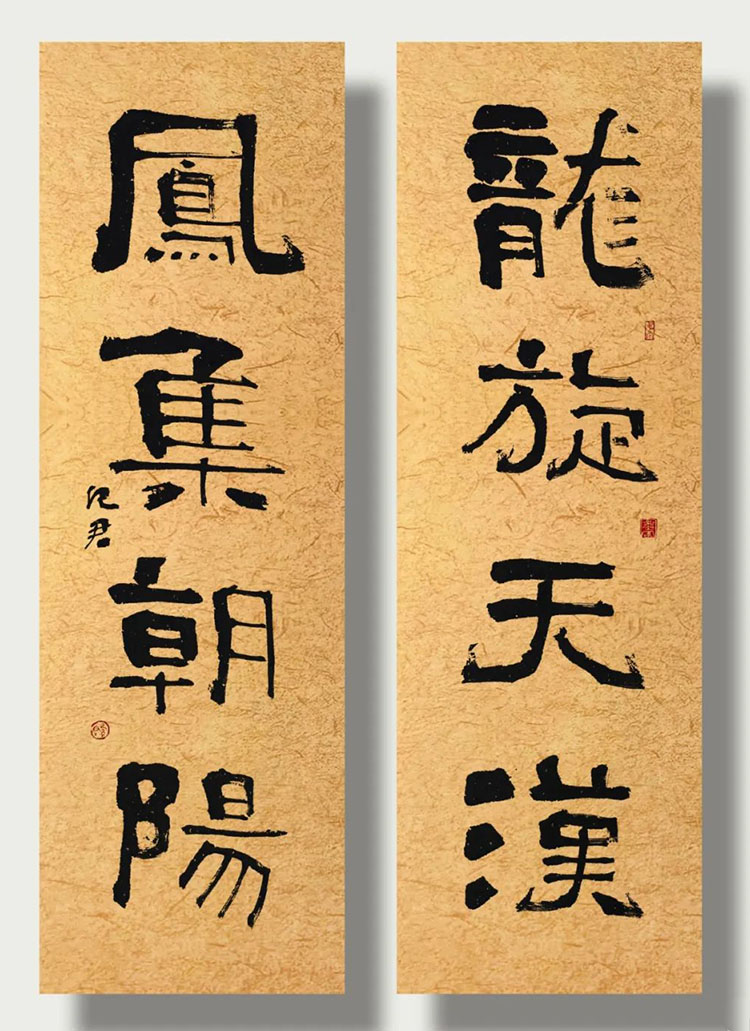 龍旋天漢
鳳集朝陽